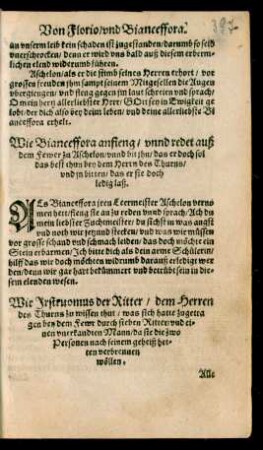 Von Florio/vnd Bianceffora.
an vnserm leib kein schaden ist zugestanden/darumb so seid
vnerschrocken/denn er wird vns bald auß diesem erberm-
lichen elend widerumb führen.
Aschelon/als er die stimb seines Herren erhört/vor
grossen freuden jhm sampt seinem Mitgesellen die Augen
vbergiengen/vnd fieng gegen jm laut schreien vnd sprach/
O mein hertz allerliebster Herr/Gott sey in Ewigkeit ge
lobt/der dich also bey deim leben/vnd deine allerliebste Bi
anceffora erhelt.
Wie Bianceffora anfieng/vnnd redet auß
dem Fewer zu Aschelon/vnnd bit jhn/das er doch sol
das best thun bey dem Herrn des Thurns/
vnd jn bitten/das er sie doch
ledig laß.
ALs Bianceffora jren Leermeister Aschelon vernomen
men hett/fieng sie an zu reden vnnd sprach/Ach du
mein liebster Zuchtmeister/du sichst in was angst
vnd noth wir jetzund stecken/vnd was wir müssen
vor grosse schand vnd schmach leiden/das doch möcht ein
Stein erbarmen/Ich bitte dich als dein arme Schülerin/
hilff das wir doch möchten widrumb darauß erledigt wer
den/denn wir gar hart bekümmert vnd betrübt sein in die-
sem elenden wesen.
Wie Irstruomus der Ritter/dem Herren
des Thurns zu wissen thut/was sich hatte zugetra
gen bey dem Fewr durch sieben Ritter/vnd ei-
nen vnerkandten Mann/da sie die zwo
Personen nach seinem geheiß het-
ten verbrennen
wöllen.
Alle